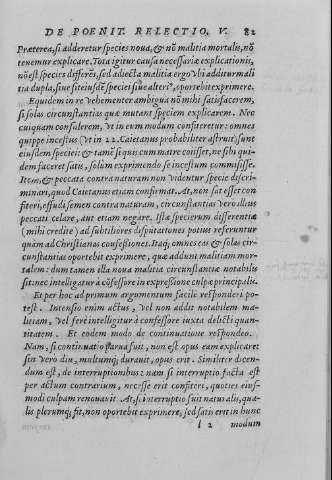 DE POENIT. RELECTIO. V. 82
Præterea, si adderetur species noua, & nō malitia mortalis, nō
tenemur explicare. Tota igitur causa necessariæ explicationis,
nō est species differēs, sed adiecta malitia ergo vbi additur mali
tia dupla, siue sit eiusdē speciei siue alteriꝰ, oportebit exprimere.
Equidem in re vehementer ambigua nō mihi satisfacerem,
si solas circunstantias quæ mutant speciem explicarem. Nec
cuiquam consulerem, vt in eum modum confiteretur: omnes
quippe incestus (vt in 22. Caietanus probabiliter astruit) sunt
eiusdem speciei: & tamē si quis cum matre coisset, ne sibi qui-
dem faceret satis, solùm exprimendo se incestum commisisse.
Item, & peccata contra naturam non videntur specie discri-
minari, quod Caietanus etiam confirmat. At, non sat esset con
fiteri, effudi semen contra naturam, circunstantias vero illius
peccati celare, aut etiam negare. Ista specierum differentiæ
(mihi credite) ad subtiliores disputationes potius referuntur
quàm ad Christianas confessiones. Itaq; omnes eas & solas cir-
cunstantias oportebit exprimere, quæ addunt malitiam mor-
talem: dum tamen illa noua malitia circunstantiæ notabilis
sit: nec intelligatur à cōfessore in expressione culpæ principalis.
Et per hoc ad primum argumentum facile respōderi po-
test. Intensio enim actus, vel non addit notabilem ma-
litiam, vel ferè intelligitur à confessore iuxta delicti quan-
titatem. Et eodem modo de continuatione respondeo.
Nam, si continuatio parua fuit, non est opus eam explicare:
sin vero diu, multumq; durauit, opus erit. Similiter dicen-
dum est, de interruptionibus: nam si interruptio facta est
per actum contrarium, necesse erit confiteri, quoties eius-
modi culpam renouauit. At, si interruptio fuit naturalis, qua-
lis plerumq; fit, non oportebit exprimere, sed satis erit in hunc
l 2 modum